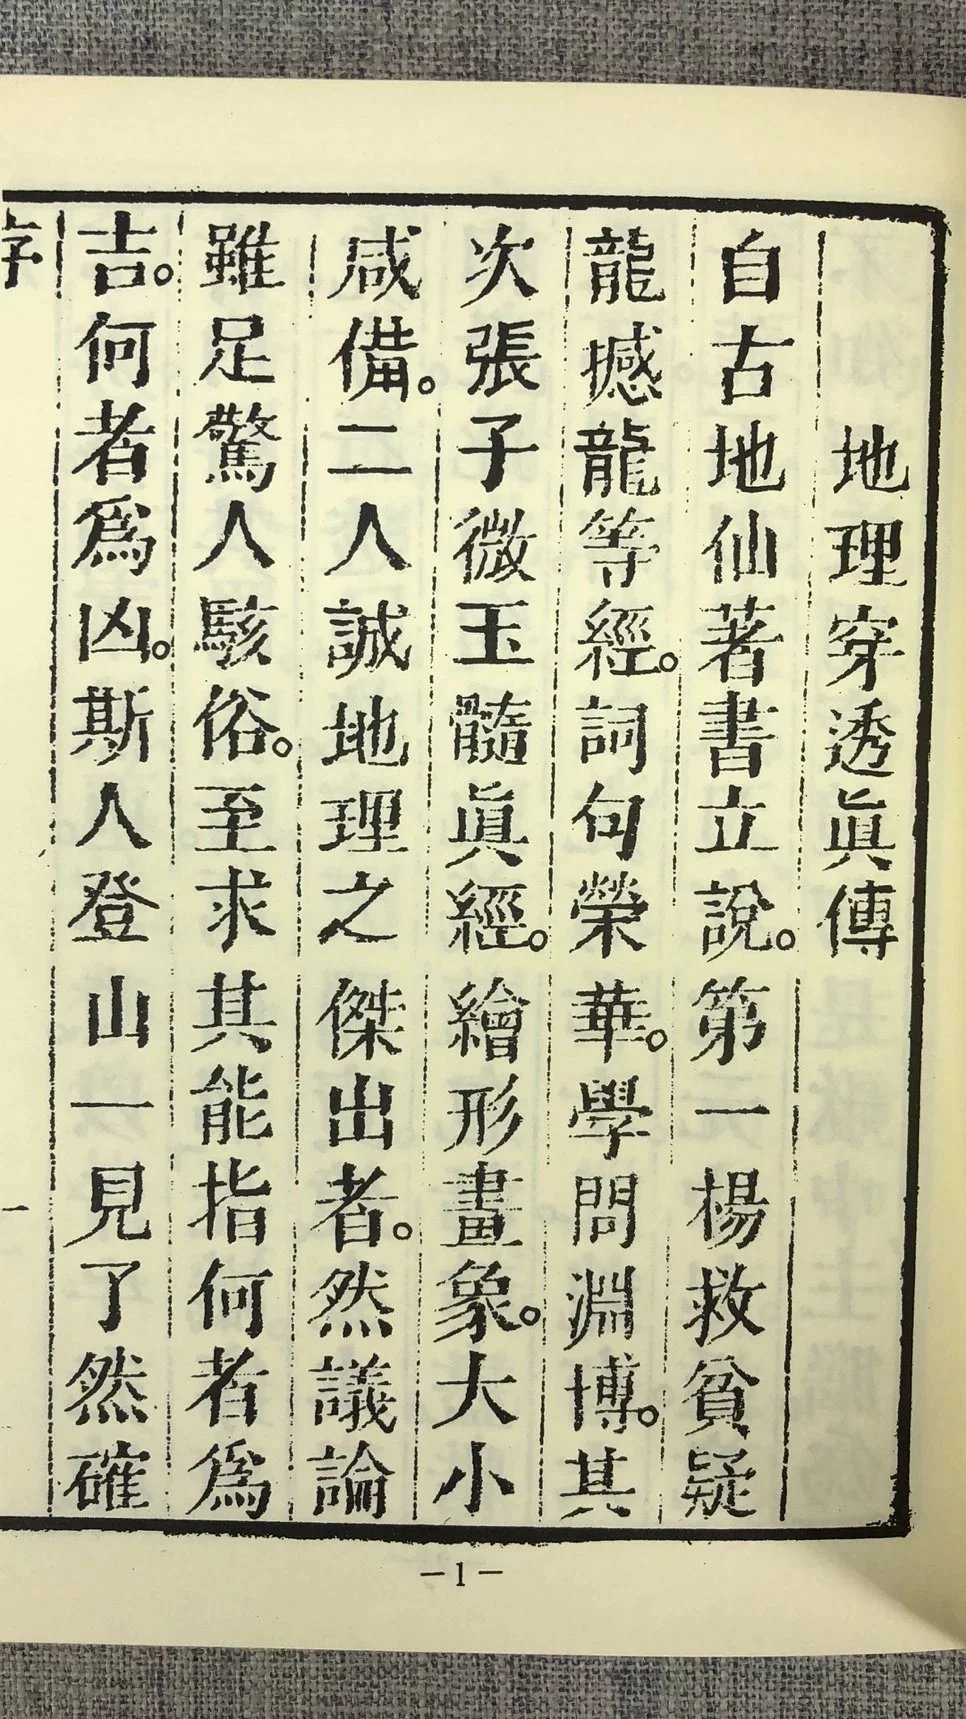 地理穿透眞傳
自古地仙著書立說。第一楊救貧疑
龍撼龍等經。詞句榮華。學問淵博。其
次張子微玉髓眞經。繪形畫象。大小
咸備。二人誠地理之傑出者。然議論
雖足驚人駭俗。至求其能指何者爲
吉。何者爲凶。斯人登山一見了然確
－1－